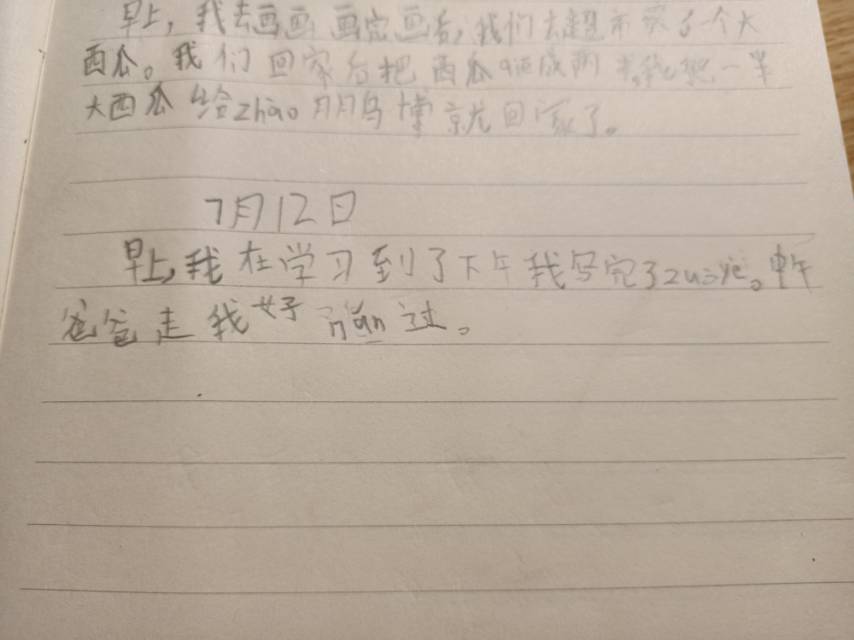 早上，我去画画 画完画后，我们去超市买了一个大
西瓜。我们回家后把西瓜qiē成两半，我把一半
大西瓜给zhāo月月鸟博就回家了。
7月12日
早上，我在学习到了下午我写完了zuò yè。中午
爸爸走我好nán过。